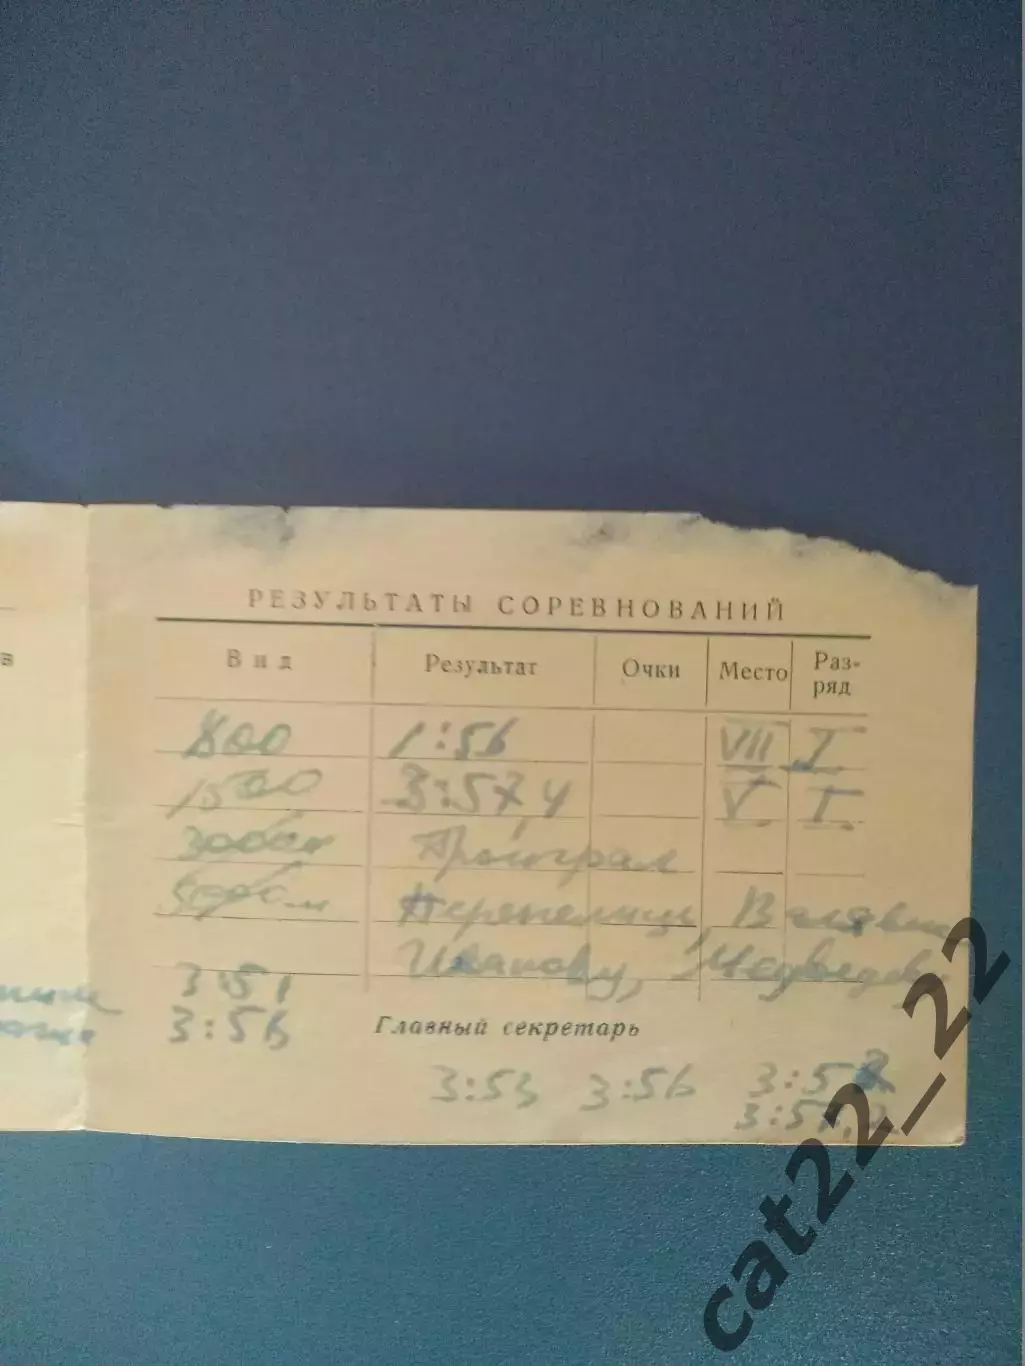 РЕЗУЛЬТАТЫ СОРЕВНОВАНИЙ
Вид Результат Очки Место Раз-ряд
800 1:56 VII I
1500 3:57,4 V I
Проиграл
Перепелице,
Иванову, Медведеву
3:51
3:56
Главный секретарь
3:53 3:56 3:5
3:57,2
cat22_22